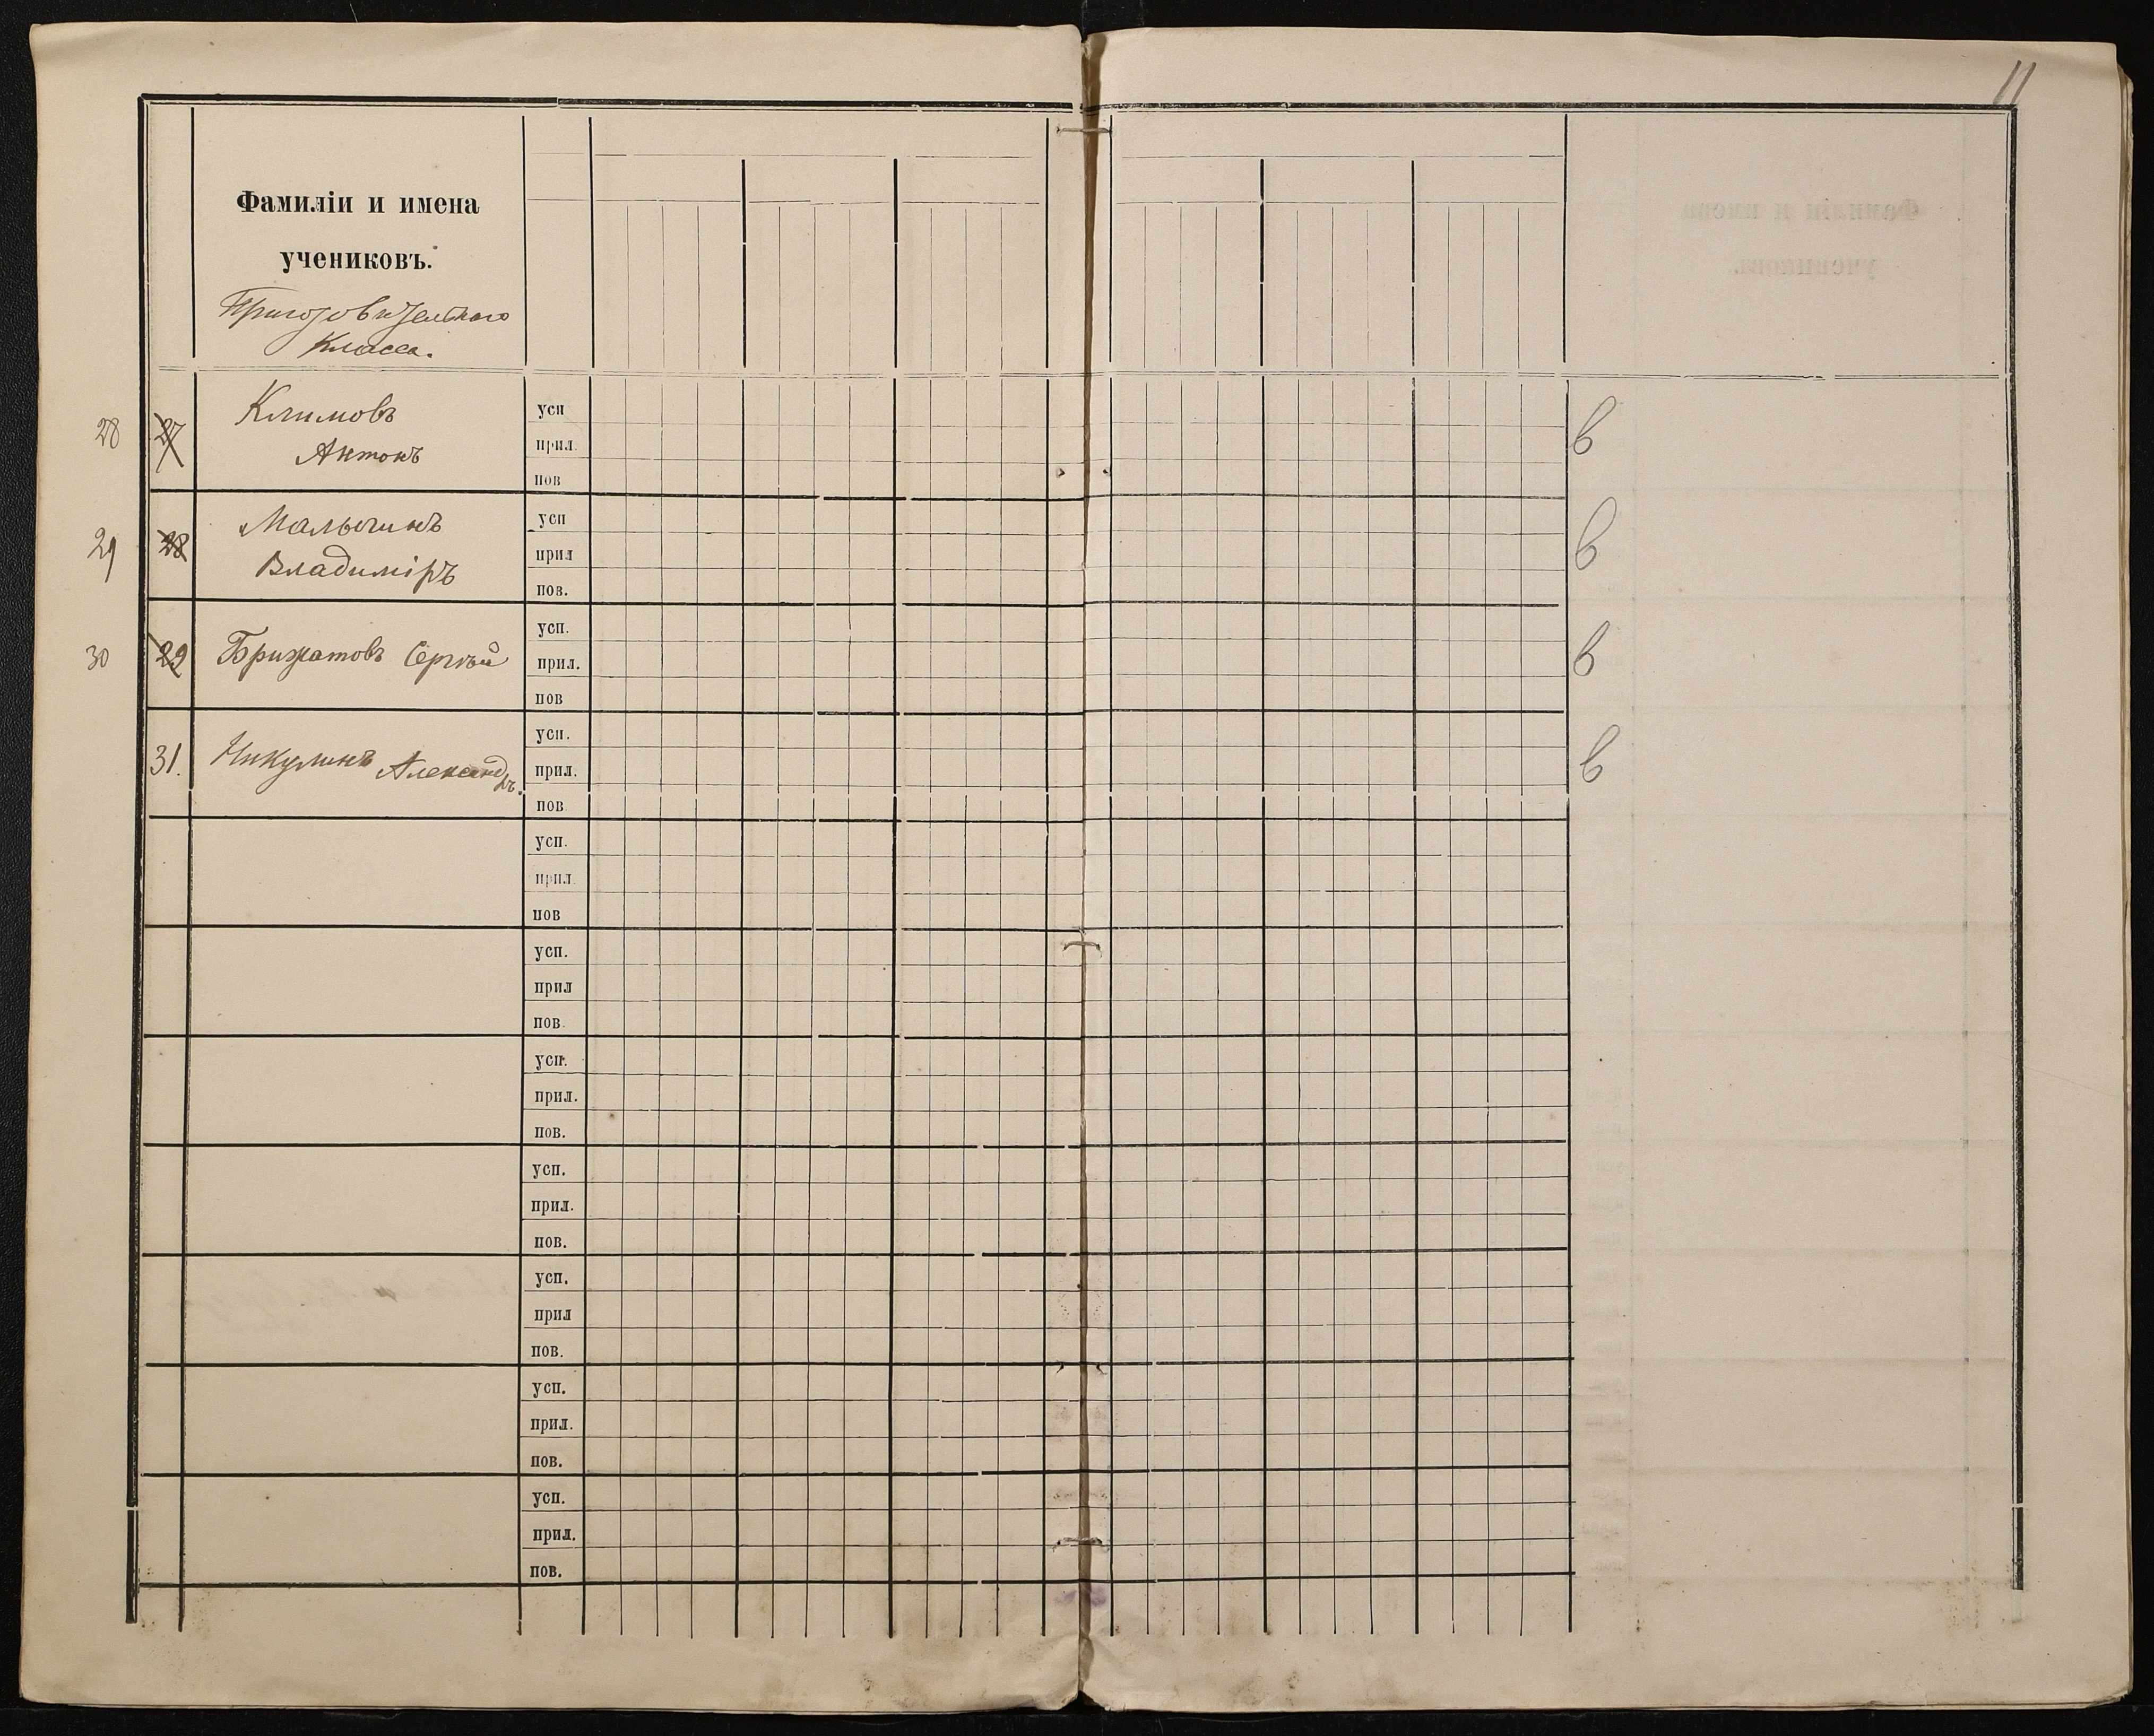 11
Фамиліи и имена
учениковъ.
Приготовительнаго
Класса.
28 27 Климовъ
Антонъ
усп
прил.
пов
в
29 28 Малыгинъ
Владиміръ
усп
прил
пов.
в
30 29 Бризжатовъ Сергѣй
усп.
прил.
пов
в
31. Никулинъ Александръ.
усп.
прил.
пов
в
усп.
прил
пов
усп.
прил
пов.
усп.
прил.
пов.
усп.
прил.
пов.
усп.
прил
пов.
усп.
прил.
пов.
усп.
прил.
пов.